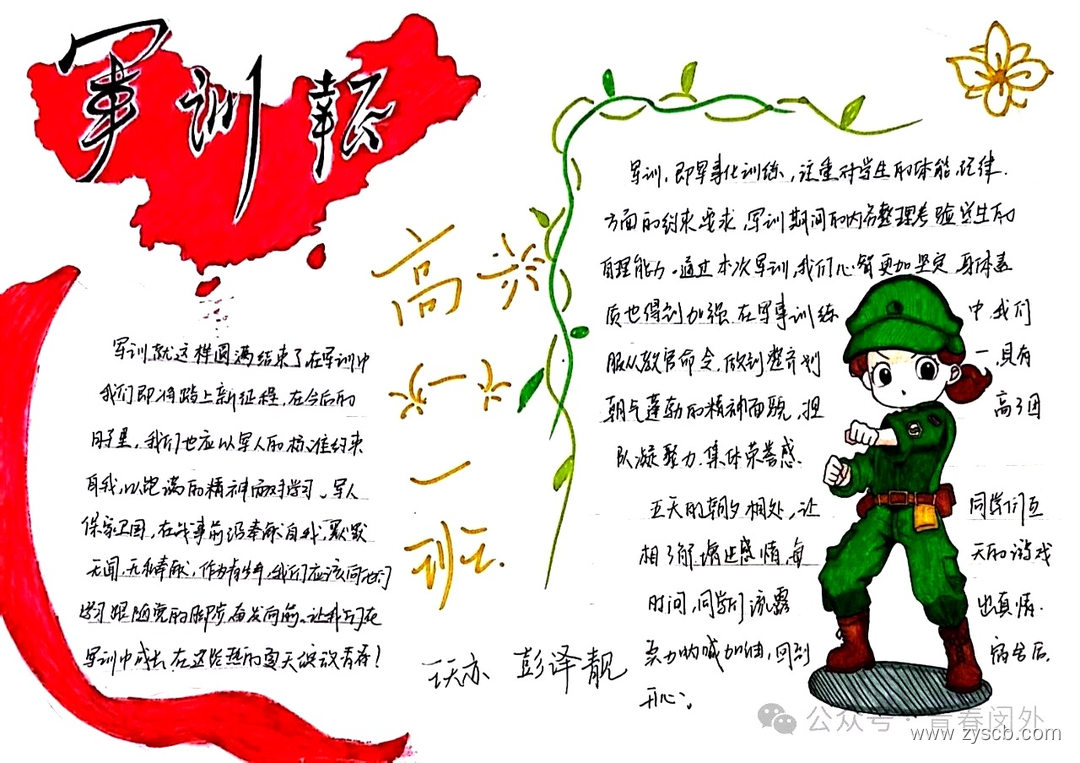 军训报
军训就这样圆满结束了在军训中
我们即将踏上新征程，在今后的
日子里，我们也应以军人的标准约束
自我，以饱满的精神面对学习。军人
保家卫国，在战事前沿奉献自我，默默
无闻，无私奉献，作为青少年，我们应该同他们
学习跟随党的脚步奋发向前。让我们在
军训中成长在这炎热的夏天绽放青春！
高兴
一
一
班
王天亦 彭泽靓
军训，即军事化训练，注重对学生的体能，纪律.
方面的约束要求，军训期间的内务整理考验学生的
自理能力。通过本次军训，我们心智更加坚定，身体素
质也得到加强在军事训练中，我们
服从教官命令，做到整齐划一，具有
朝气蓬勃的精神面貌，提高了团
队凝聚力，集体荣誉感.
五天的朝夕相处，让同学们互
相了解，增进感情，每天的游戏
时间，同学们流露出真情.
卖力呐喊加油，回到宿舍后
开心。
公众号·青春闵外
www.zyscb.com